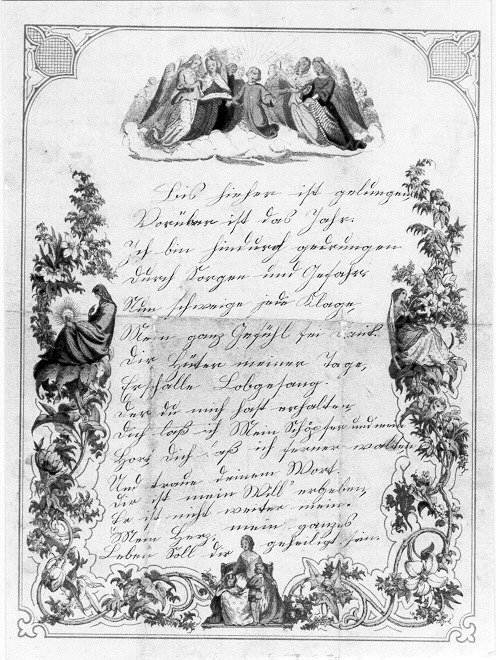 Bis hieher ist gelungen
Vorüber ist das Jahr.
Ich bin hindurch gedrungen
Durch Sorgen und Gefahr
Nun schweige jede Klage,
Mein ganz Gefühl sei Dank.
Dir Hüter meiner Tage,
Erschalle Lobgesang.
Der du mich hast erhalten,
Dich laß ich Mein Schöpfer und
Hort Dich laß ich ferner walten
Und traue deinem Wort.
Dir ist mein Will ergeben,
Er ist nicht weiter mein.
Mein Herz, mein ganzes
Leben Soll dir geheiligt sein.